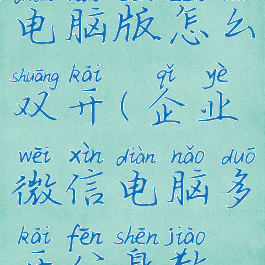 电脑版怎么
shuāng kāi qǐ yè
双开(企业
wēi xìn diàn nǎo duō
微信电脑多
kāi fēn shēn jiào
开分身教